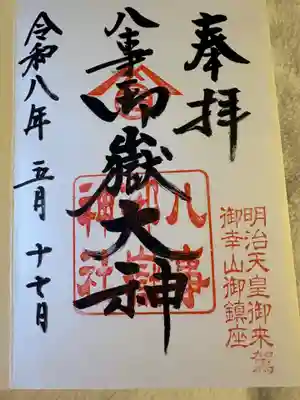 奉拝
明治天皇御来駕
御幸山御鎮座
八事御嶽大神
八事御嶽神社
令和八年五月十七日